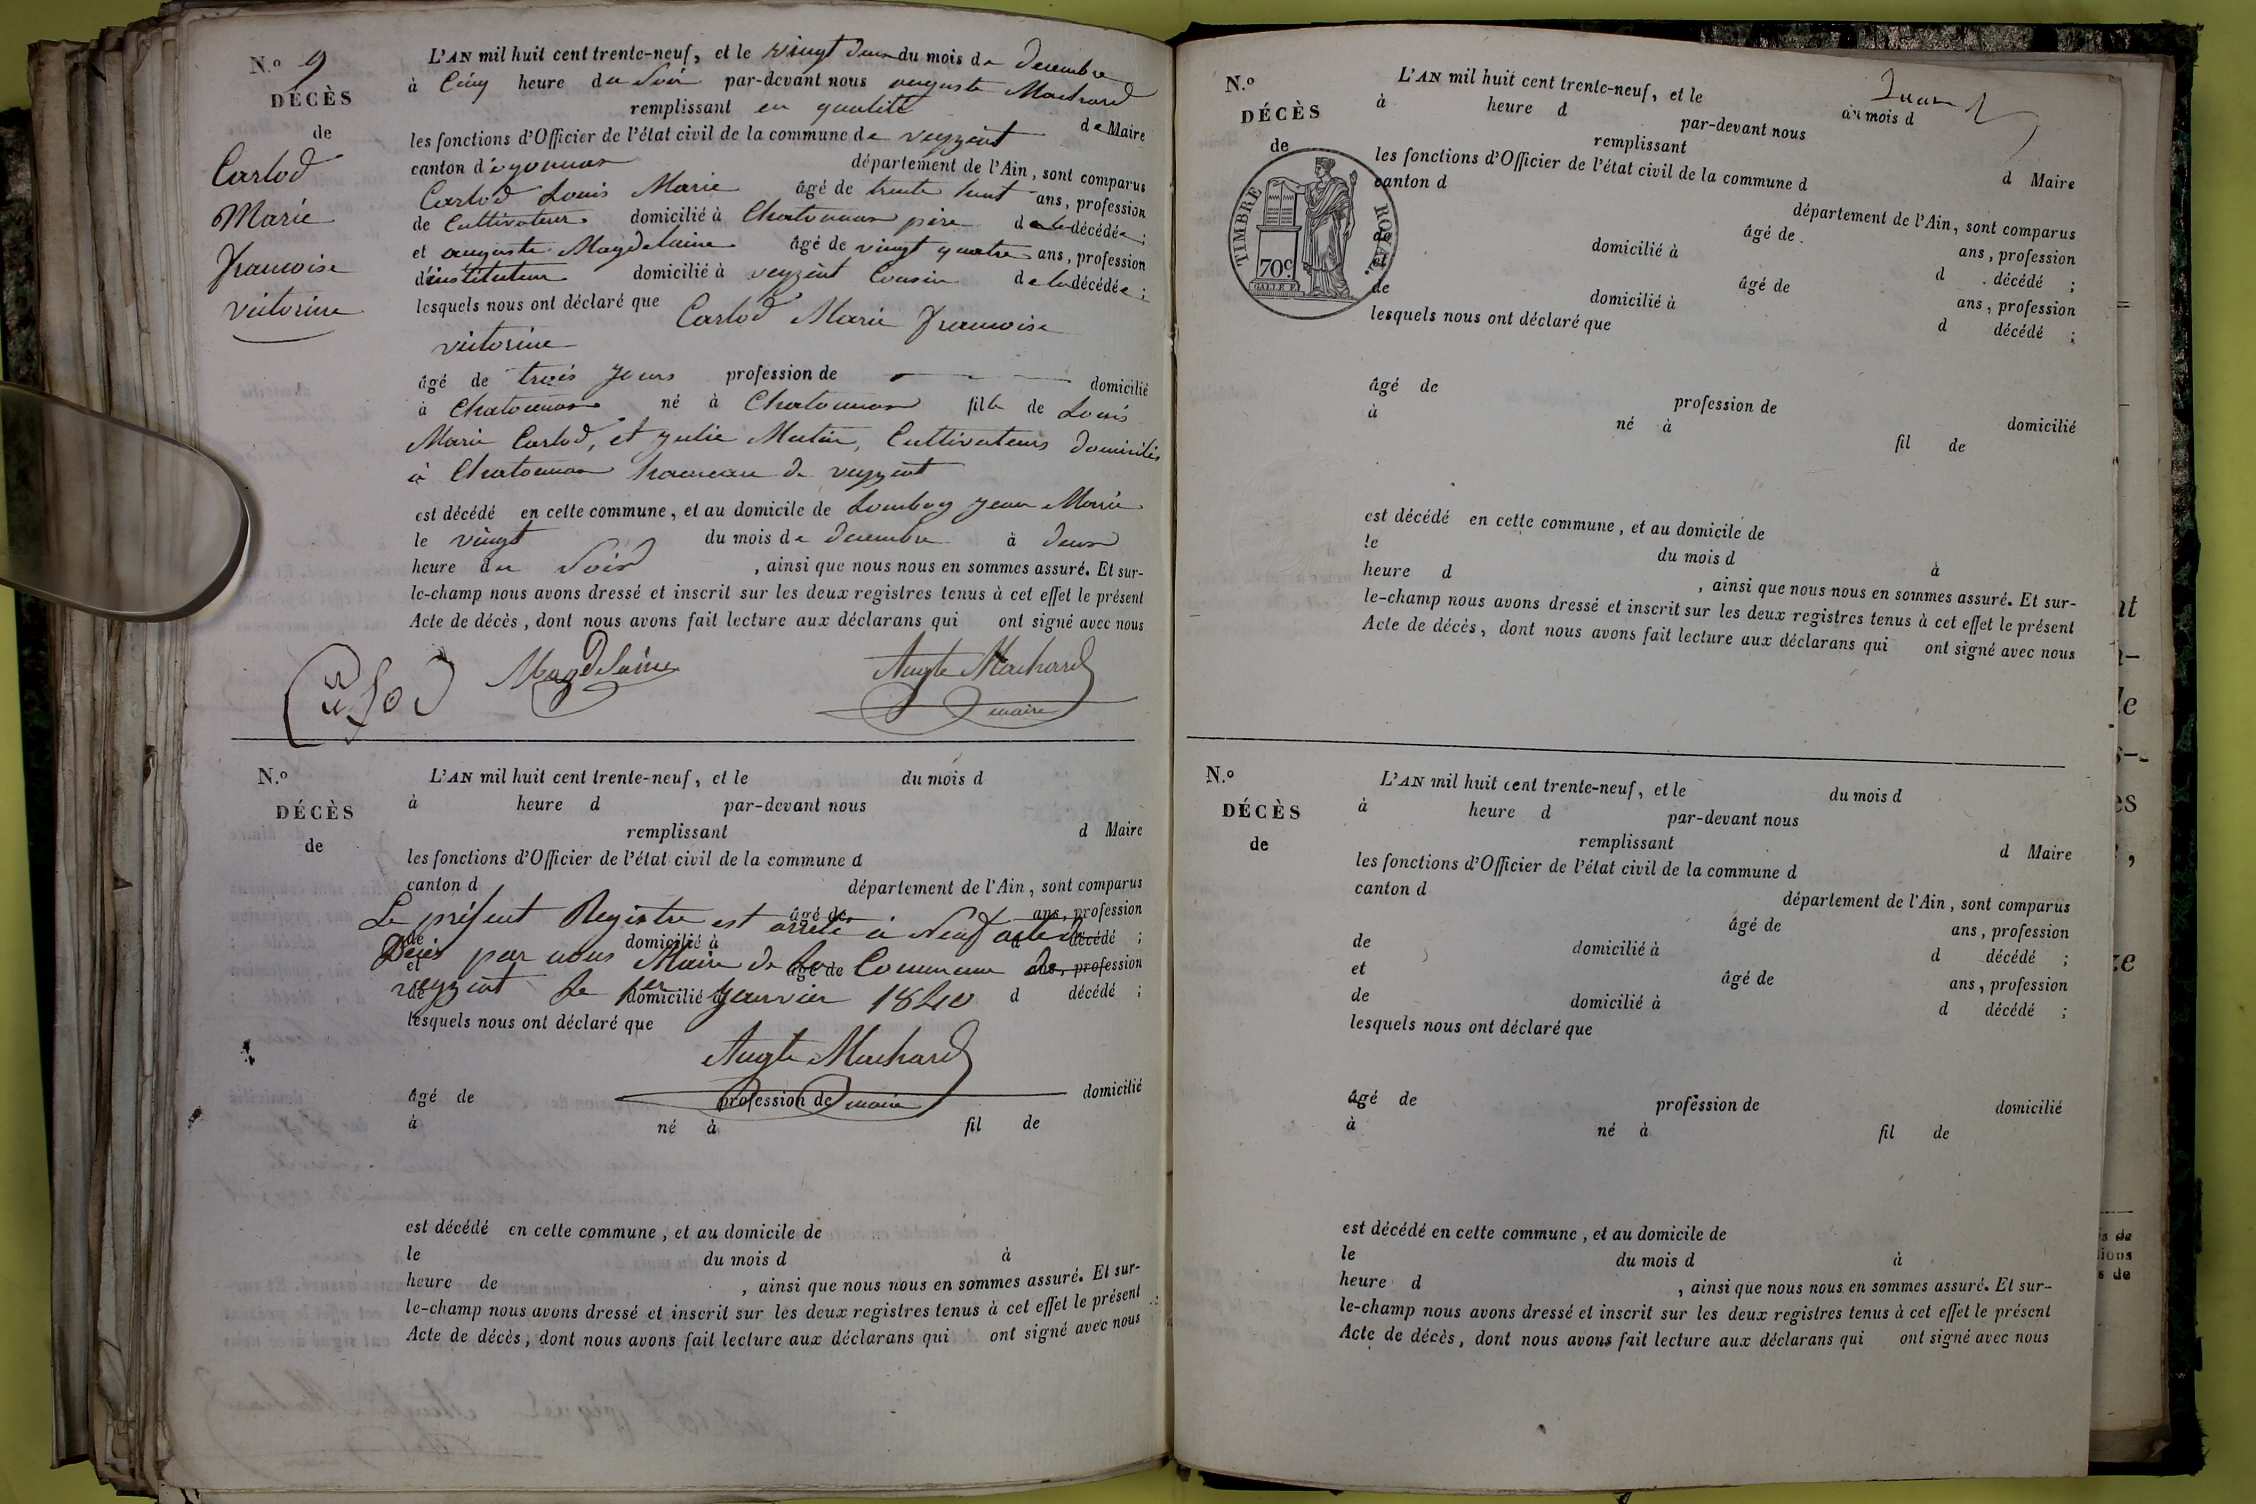 N.o 9
DÉCÈS
de
Carlod
Marie
francoise
victorine
L'AN mil huit cent trente-neuf, et le vingt deux du mois de decembre
à Cinq heure du Soir par-devant nous auguste Machard
remplissant en qualité de Maire
les fonctions d'Officier de l'état civil de la commune de veyziat
canton d'oyonnax département de l'Ain, sont comparus
Carlod Louis Marie âgé de trente huit ans, profession
de Cultivateur domicilié à Chatonnax père de la décédée;
et auguste Magdelaine âgé de vingt quatre ans, profession
d'instituteur domicilié à veyziat Cousin de la décédée;
lesquels nous ont déclaré que Carlod Marie francoise
victorine
âgé de trois jours profession de domicilié
à Chatonnax né à Chatonnax fille de Louis
Marie Carlod, et julie Matin, Cultivateurs domiciliés
à Chatonnax hameau de veyziat
est décédé en cette commune, et au domicile de Jean Marie
le vingt du mois de decembre à deux
heure du Soir , ainsi que nous nous en sommes assuré. Et sur-
le-champ nous avons dressé et inscrit sur les deux registres tenus à cet effet le présent
Acte de décès, dont nous avons fait lecture aux déclarans qui ont signé avec nous
Magdelaine Augte Machard
maire
N.o
DÉCÈS
de
L'AN mil huit cent trente-neuf, et le du mois d
à heure d par-devant nous
remplissant d Maire
les fonctions d'Officier de l'état civil de la commune d
canton d département de l'Ain, sont comparus
âgé de ans, profession
Le présent Registre est arrêté à Neuf actes de
de domicilié à d décédé ;
Décès par nous Maire de la Commune de
et âgé de ans, profession
veyziat le 1er Janvier 1840
de domicilié à d décédé ;
lesquels nous ont déclaré que
Augte Machard
maire
âgé de profession de domicilié
à né à fil de
est décédé en cette commune, et au domicile de
le du mois d à
heure de , ainsi que nous nous en sommes assuré. Et sur-
le-champ nous avons dressé et inscrit sur les deux registres tenus à cet effet le présent
Acte de décès, dont nous avons fait lecture aux déclarans qui ont signé avec nous
N.o
DÉCÈS
de
TIMBRE ROYAL.
70c
L'AN mil huit cent trente-neuf, et le du mois d
à heure d par-devant nous
remplissant d Maire
les fonctions d'Officier de l'état civil de la commune d
canton d département de l'Ain, sont comparus
âgé de ans, profession
de domicilié à d décédé ;
et âgé de ans, profession
de domicilié à d décédé ;
lesquels nous ont déclaré que
âgé de profession de domicilié
à né à fil de
est décédé en cette commune, et au domicile de
le du mois d à
heure d , ainsi que nous nous en sommes assuré. Et sur-
le-champ nous avons dressé et inscrit sur les deux registres tenus à cet effet le présent
Acte de décès, dont nous avons fait lecture aux déclarans qui ont signé avec nous
N.o
DÉCÈS
de
L'AN mil huit cent trente-neuf, et le du mois d
à heure d par-devant nous
remplissant d Maire
les fonctions d'Officier de l'état civil de la commune d
canton d département de l'Ain, sont comparus
âgé de ans, profession
de domicilié à d décédé ;
et âgé de ans, profession
de domicilié à d décédé ;
lesquels nous ont déclaré que
âgé de profession de domicilié
à né à fil de
est décédé en cette commune, et au domicile de
le du mois d à
heure d , ainsi que nous nous en sommes assuré. Et sur-
le-champ nous avons dressé et inscrit sur les deux registres tenus à cet effet le présent
Acte de décès, dont nous avons fait lecture aux déclarans qui ont signé avec nous